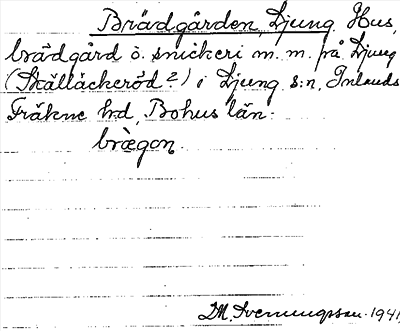 Brädgården, Ljung. Hus,
brädgård o. snickeri m. m. på Ljung
(Skälläckeröd?) i Ljung s:n, Inlands
Fräkne h:d, Bohus län.
brægɒn.
M. Svenungsson 1941